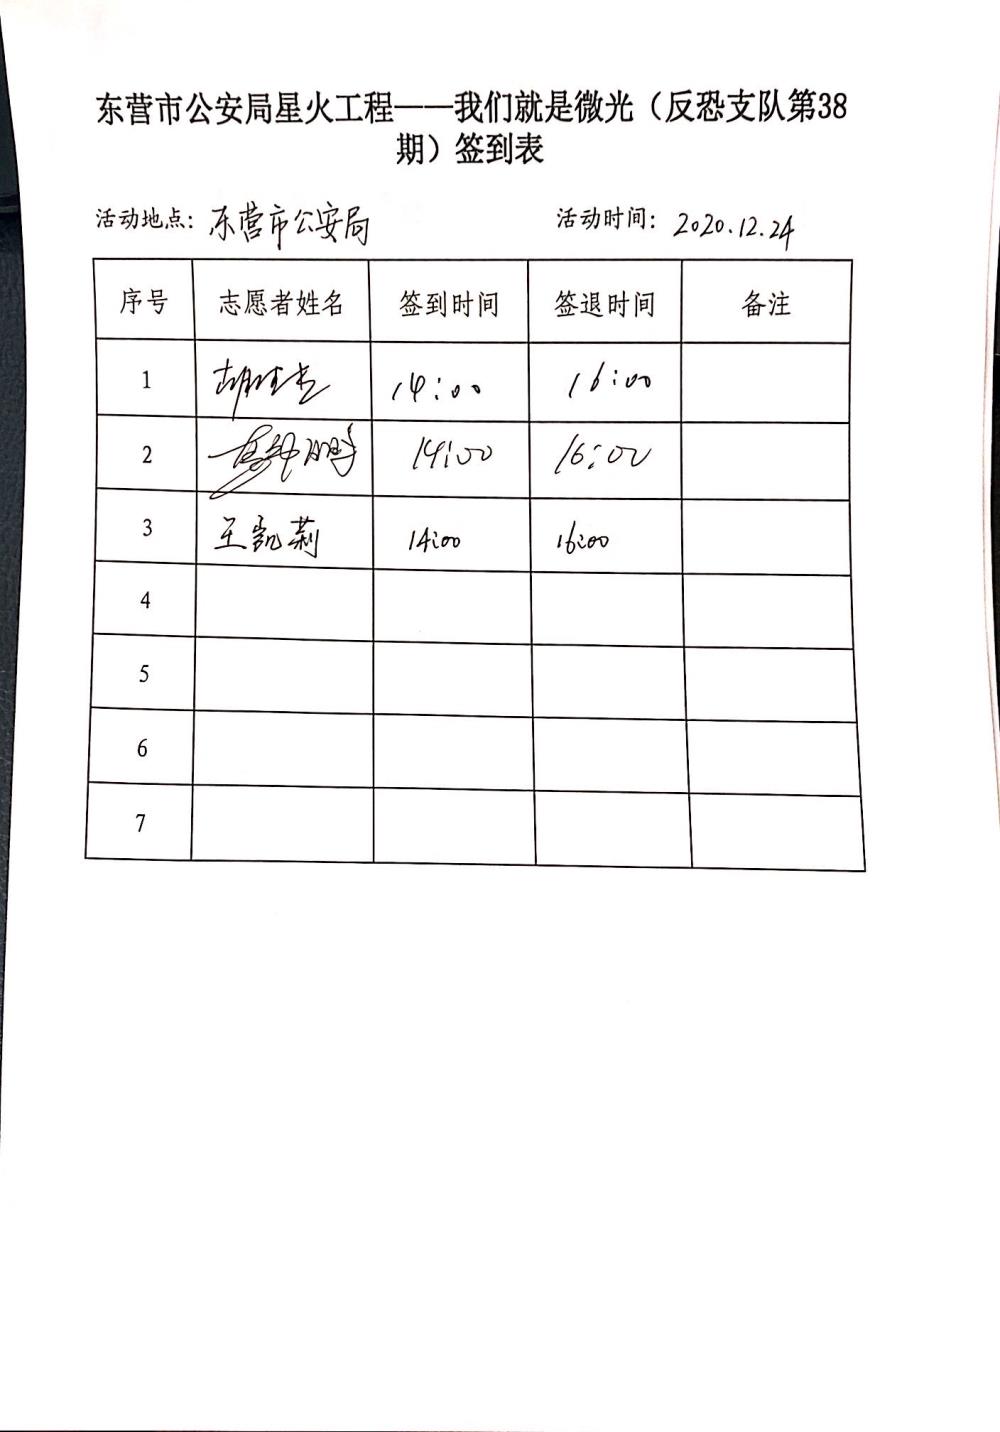 东营市公安局星火工程——我们就是微光（反恐支队第38
期）签到表
活动地点：东营市公安局 活动时间：2020.12.24
序号 志愿者姓名 签到时间 签退时间 备注
1 14:00 16:00
2 14:00 16:00
3 王凯莉 14:00 16:00
4
5
6
7